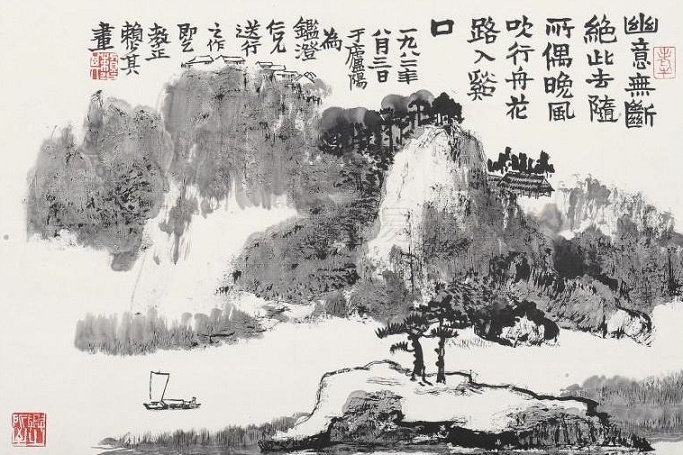 幽意無斷
絕此去隨
所偶晚風
吹行舟花
路入谿
口
一九八二年
八月三日
于廬陽
為
鑑澄
仁兄
送行
之作
即乞
教正
賴少其
畫